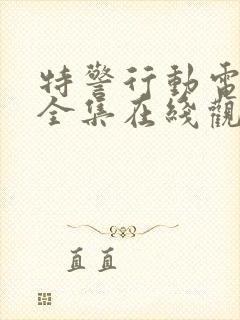 特警行動電
全集在綫觀
直直